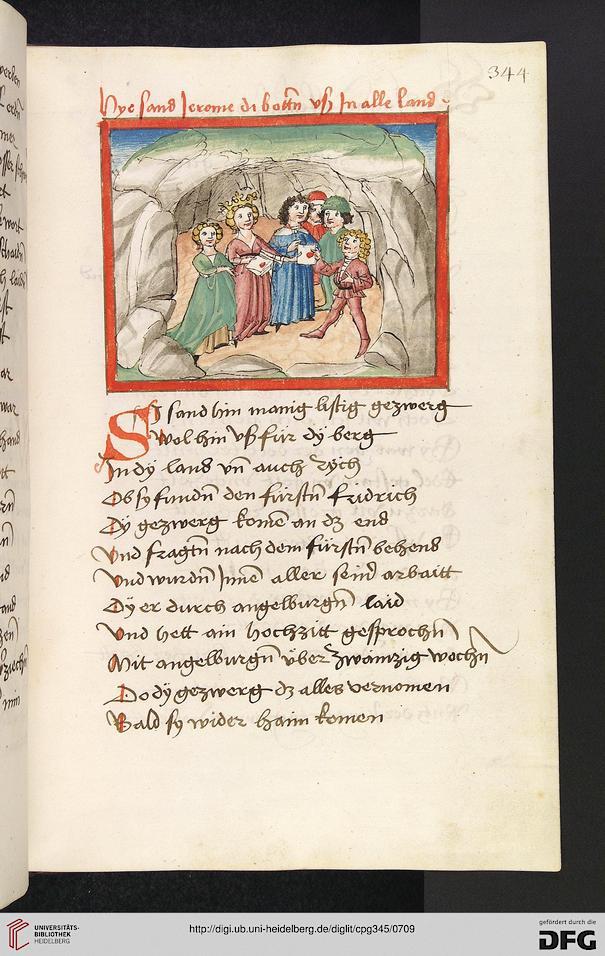 344
Hye sand Jerome di bottn vß Jn alle land
Sy sand hin manig listig gezwerg
Wol hin vß für dÿ berg
Jn dÿ land vn auch rÿch
Ob sy fundn den fürstn fridrich
Dÿ gezwerg komē an dz end
Vnd fragtn nach dem fürstn behend
Vnd wurdn Jnnē aller seinr arbaitt
Dÿ er durch angelburgn laid
Vnd hett ain hochzitt gesprochn
Mit angelburgn über zwaintzig wochn
Do dÿ gezwerg dz alles vernomen
Bald sy wider haim komen
UNIVERSITÄTS-
BIBLIOTHEK
HEIDELBERG
http://digi.ub.uni-heidelberg.de/diglit/cpg345/0709
gefördert durch die
DFG